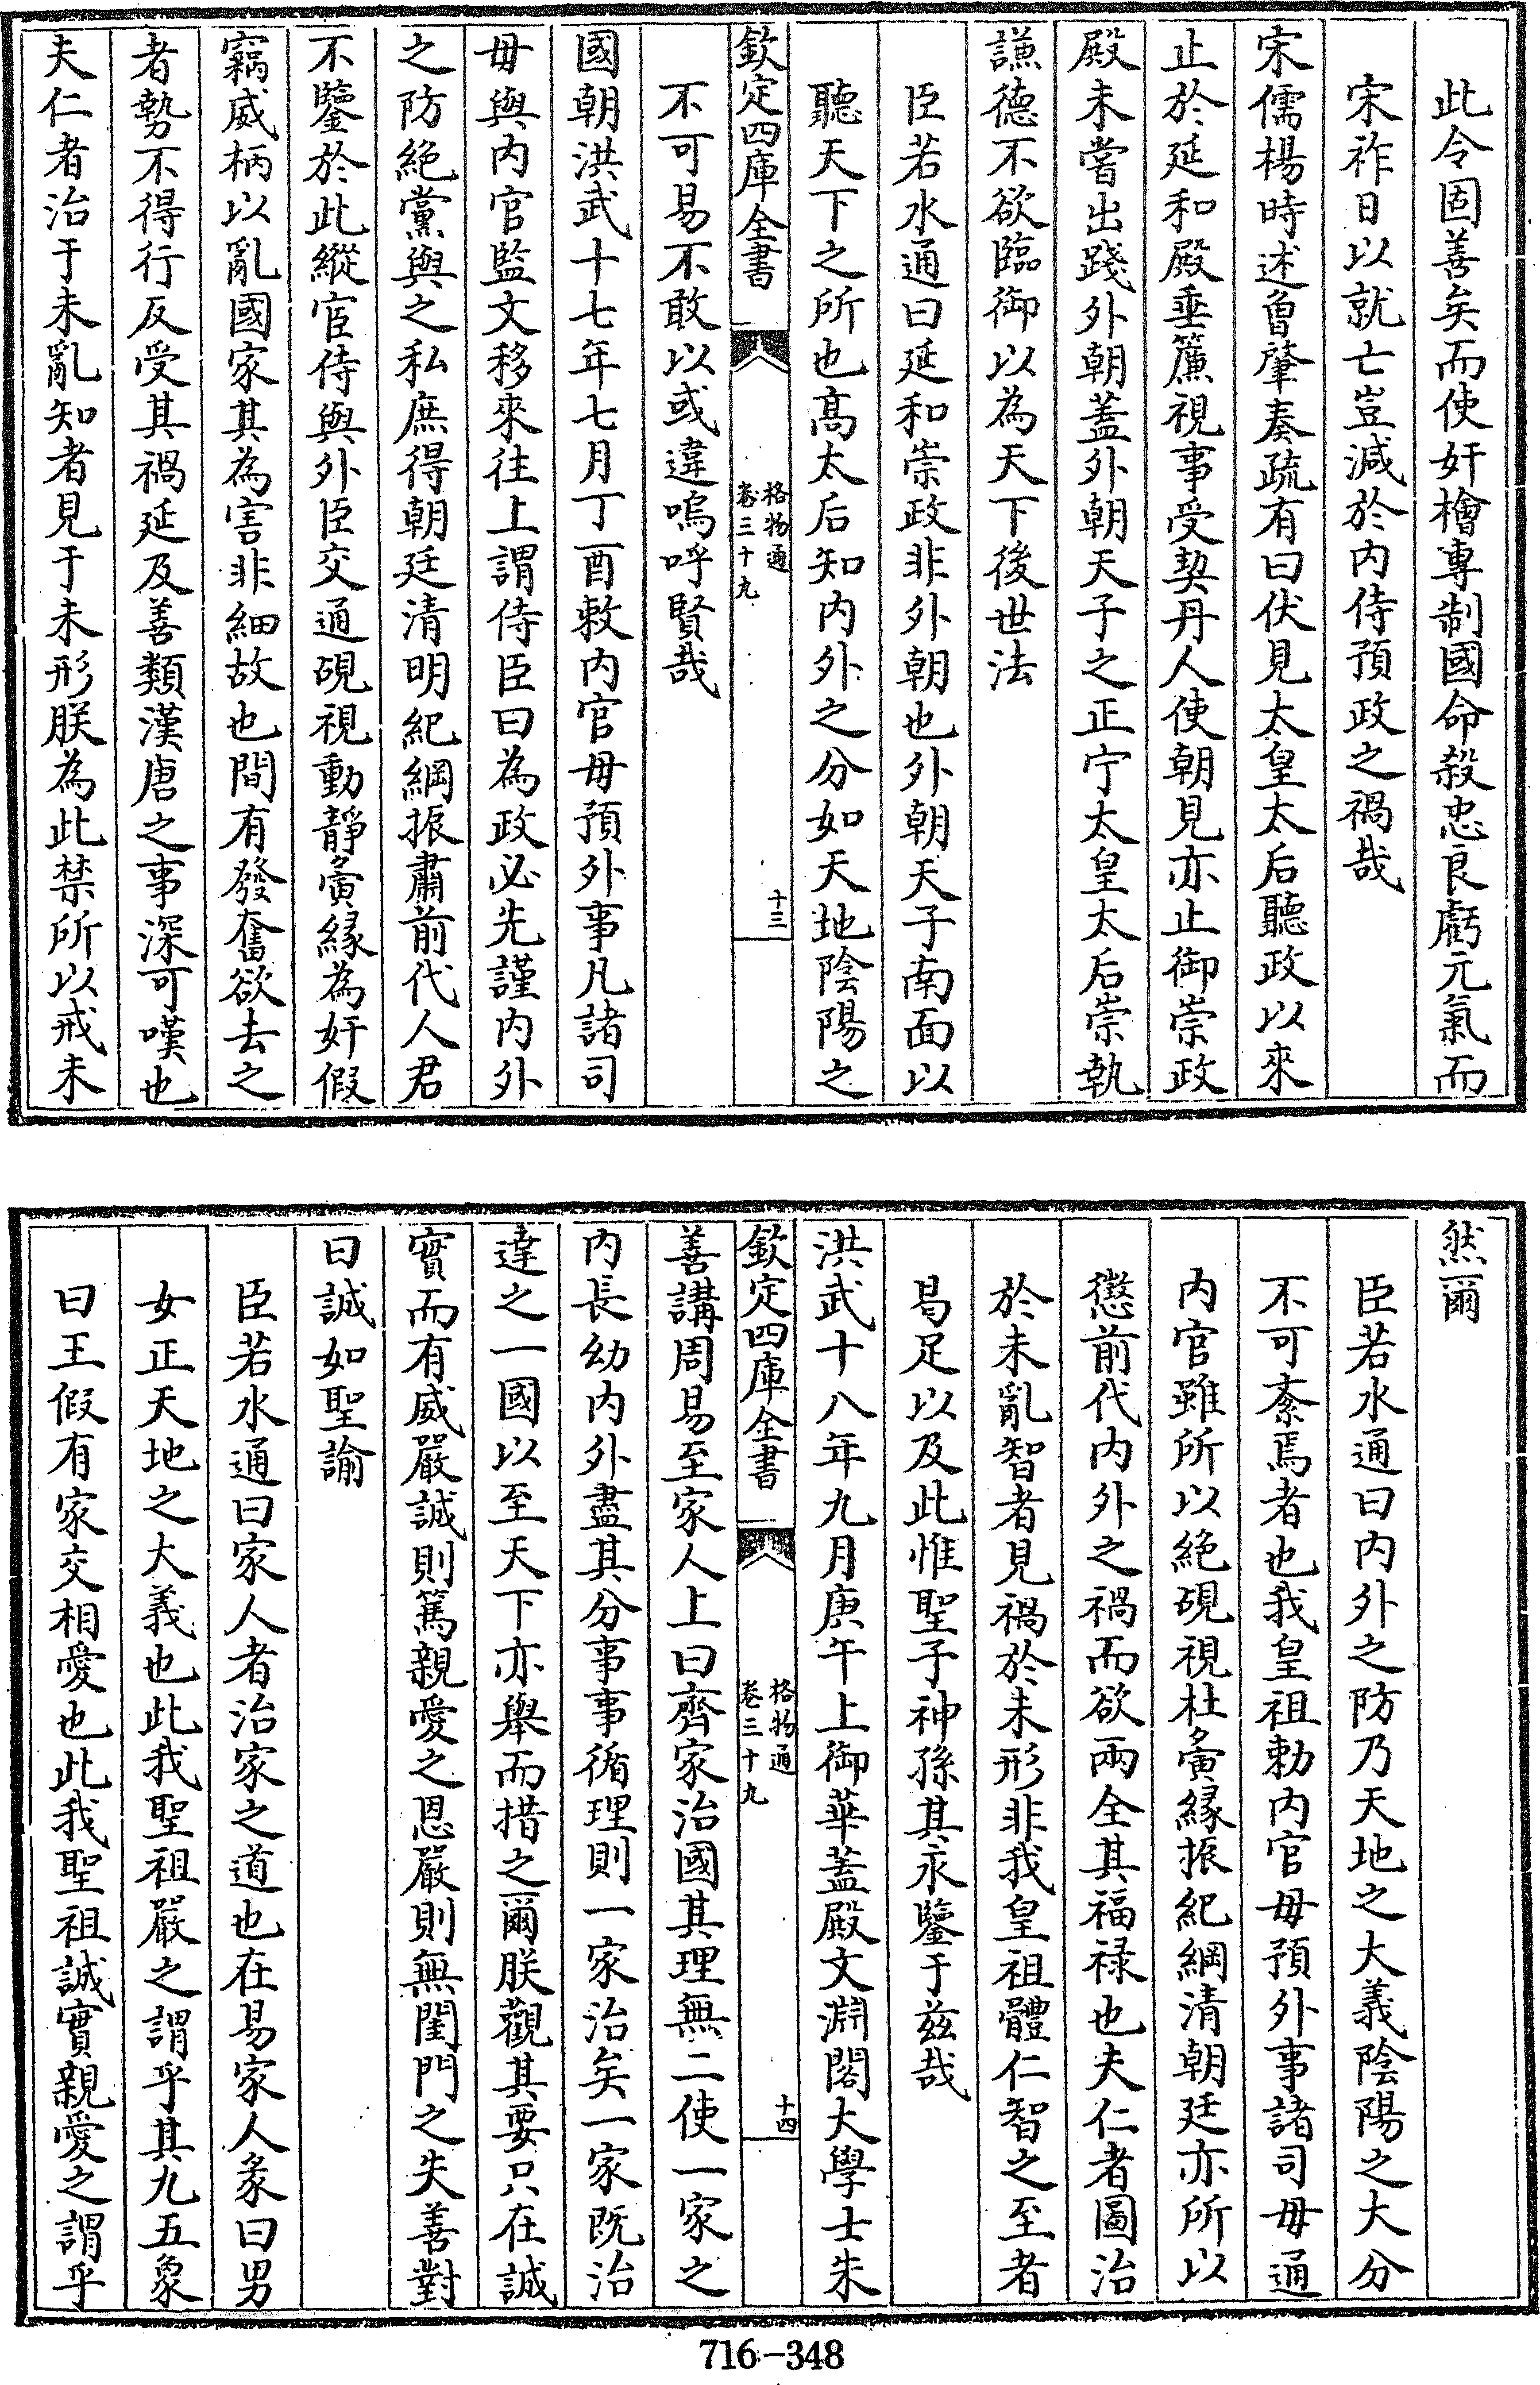 此令固善矣而使奸檜專制國命殺忠良虧元氣而
宋祚日以就亡豈減於内侍預政之禍哉
宋儒楊時述曾肇奏疏有曰伏見太皇太后聽政以來
止於延和殿垂簾視事受契丹人使朝見亦止御崇政
殿未嘗出踐外朝蓋外朝天子之正宁太皇太后崇執
謙德不欲臨御以為天下後世法
臣若水通曰延和崇政非外朝也外朝天子南面以
聽天下之所也髙太后知内外之分如天地陰陽之
欽定四庫全書
格物通
卷三十九
十三
不可易不敢以或違嗚呼賢哉
國朝洪武十七年七月丁酉敕内官毋預外事凡諸司
毋與内官監文移來往上謂侍臣曰為政必先謹内外
之防絶黨與之私庶得朝廷清明紀綱振肅前代人君
不鑒於此縱宦侍與外臣交通覘視動靜夤縁為奸假
竊威柄以亂國家其為害非細故也間有發奮欲去之
者勢不得行反受其禍延及善類漢唐之事深可嘆也
夫仁者治于未亂知者見于未形朕為此禁所以戒未
然爾
臣若水通曰内外之防乃天地之大義陰陽之大分
不可紊焉者也我皇祖勅内官毋預外事諸司毋通
内官雖所以絶覘視杜夤縁振紀綱清朝廷亦所以
懲前代内外之禍而欲兩全其福禄也夫仁者圖治
於未亂智者見禍於未形非我皇祖體仁智之至者
曷足以及此惟聖子神孫其永鑒于兹哉
洪武十八年九月庚午上御華蓋殿文淵閣大學士朱
欽定四庫全書
格物通
卷三十九
十四
善講周易至家人上曰齊家治國其理無二使一家之
内長幼内外盡其分事事循理則一家治矣一家既治
達之一國以至天下亦舉而措之爾朕觀其要只在誠
實而有威嚴誠則篤親愛之恩嚴則無閨門之失善對
曰誠如聖諭
臣若水通曰家人者治家之道也在易家人彖曰男
女正天地之大義也此我聖祖嚴之謂乎其九五象
曰王假有家交相愛也此我聖祖誠實親愛之謂乎
716-348